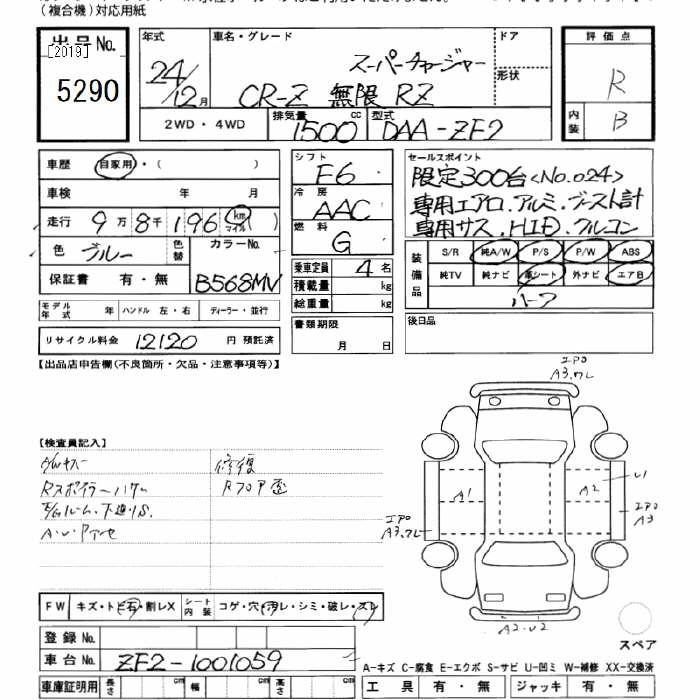 (複合機)対応用紙
出品No.
[2019]
5290
年式
24/12月
車名・グレード
スーパーチャージャー
CR-Z 無限 RZ
ドア
形状
評価点
R
内装
B
2WD・4WD
排気量
1500
cc
型式
DAA-ZF2
車歴
自家用・( )
車検 年 月
走行 9万8千196 km マイル ( )
色 ブルー
色替
カラーNo.
B568MV
保証書 有・無
モデル年式 年 ハンドル 左・右 ディーラー・並行
リサイクル料金 12120 円 預託済
シフト
F6
冷房
AAC
燃料
G
乗車定員 4名
積載量 kg
総重量 kg
書類期限
月 日
セールスポイント
限定300台<No.024>
専用エアロ.アルミ.ブースト計
専用サス.HID.フルコン
装備品
S/R 純A/W P/S P/W ABS
純TV 純ナビ 革シート 外ナビ エアB
ハーフ
後日品
【出品店申告欄(不良箇所・欠品・注意事項等)】
【検査員記入】
修復
Rスポイラーハゲ
RフロアP歪
下廻りS.
FW キズ・トビ石・割レX
シート内装 コゲ・穴・汚レ・シミ・破レ・スレ
登録No.
車台No. ZF2-1001059
車庫証明用 長さ cm 幅 cm 高さ cm
エアロ
A3.ワレ
A1
A2
U1
エアロ
A3
エアロ
A3.ワレ
A2.U2
スペア
A-キズ C-腐食 E-エクボ S-サビ U-凹ミ W-補修 XX-交換済
工具 有・無 ジャッキ 有・無